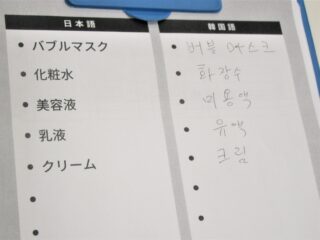 日本語 韓国語
バブルマスク 버블 마스크
化粧水 화장수
美容液 미용액
乳液 유액
クリーム 크림